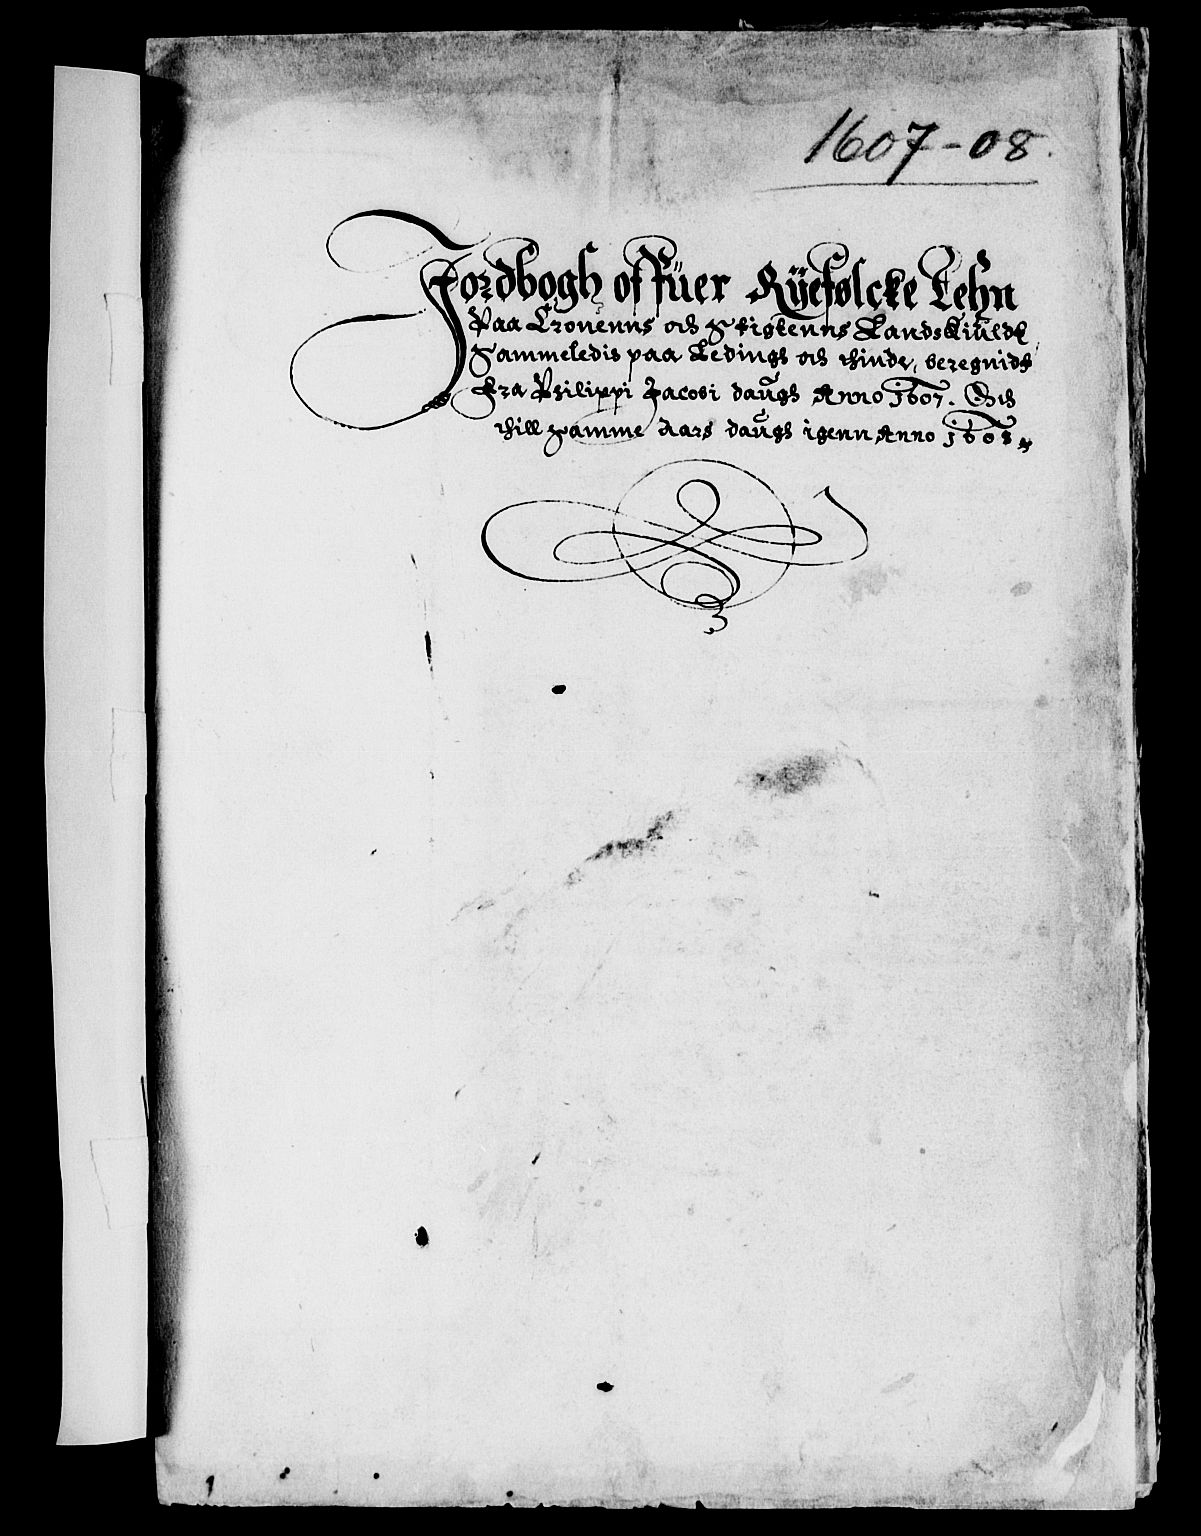 1607-08.
Jordbogh offüer Ryefølcke Lehn
Paa Cronenns och Stigtenns Landskiuld,
Sammeledis paa Ledings och thinde, beregnidt
Fra Philippi Jacobi daugh Anno 1607. Och
thill Samme Aars daugh igenn Anno 1608